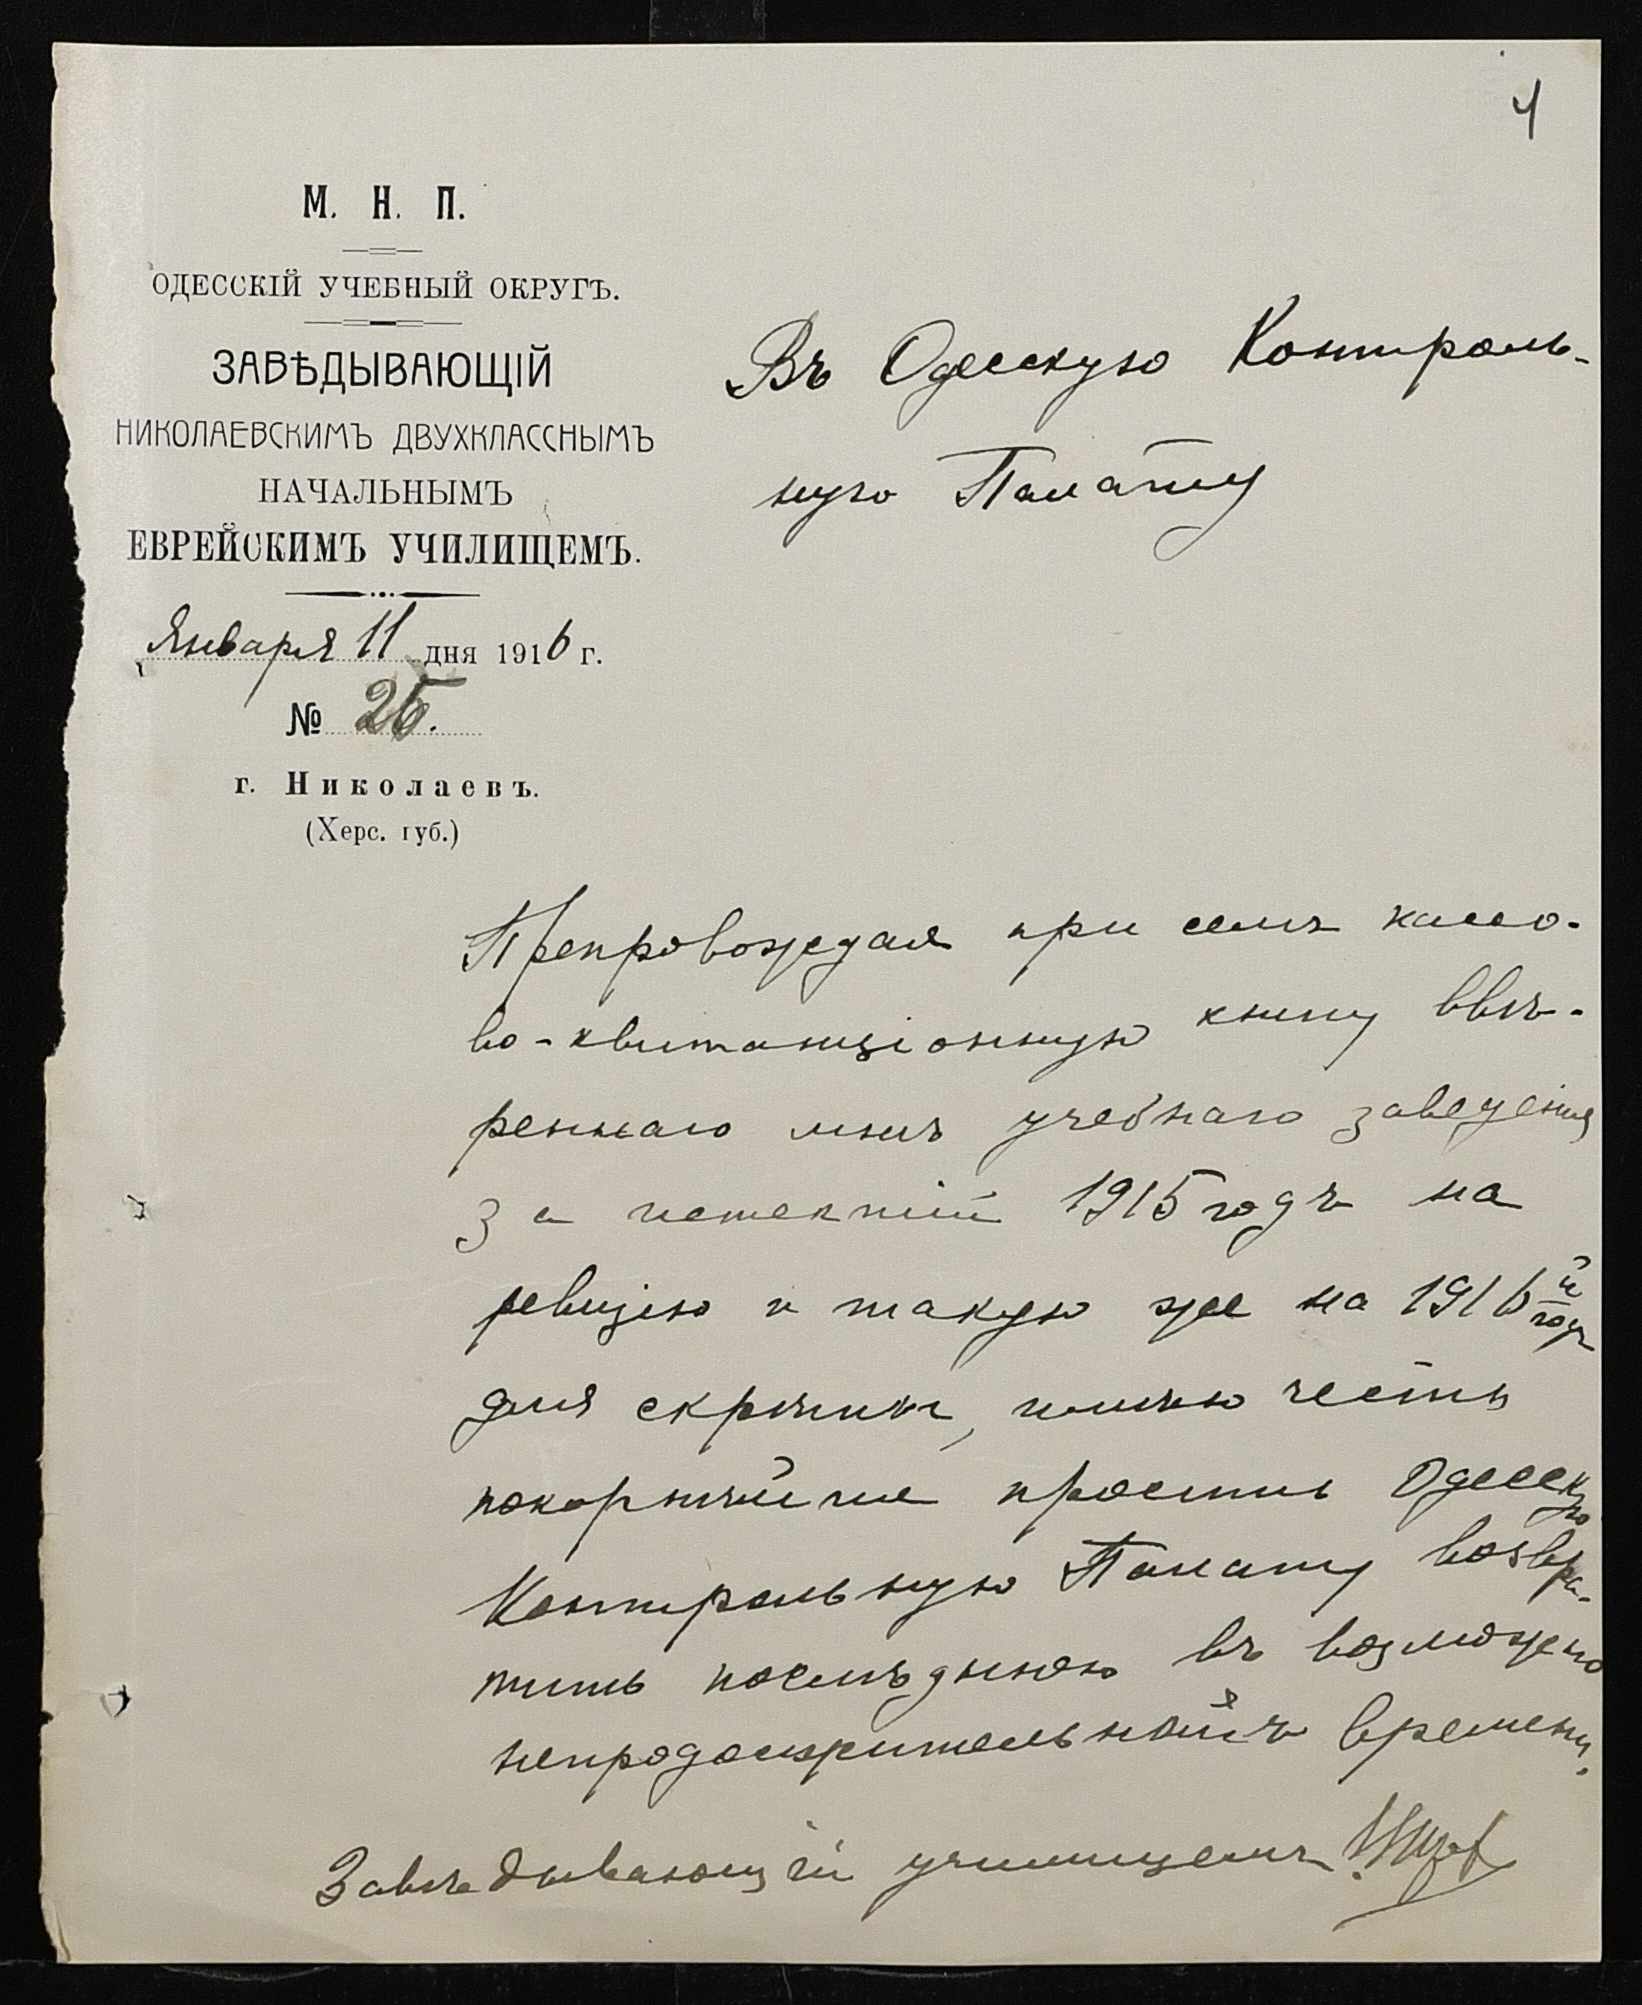 4
М. Н. П.
ОДЕССКІЙ УЧЕБНЫЙ ОКРУГЪ.
ЗАВѢДЫВАЮЩІЙ
НИКОЛАЕВСКИМЪ ДВУХКЛАССНЫМЪ
НАЧАЛЬНЫМЪ
ЕВРЕЙСКИМЪ УЧИЛИЩЕМЪ.
Января 11 дня 1916 г.
№ 25.
г. Николаевъ.
(Херс. губ.)
Въ Одесскую Контроль-
ную Палату
Препровождая при семъ кассо-
во-квитанціонную книгу ввѣ-
реннаго мнѣ учебнаго заведенія
за истекшій 1915 годъ на
ревизію и такую же на 1916й годъ
для скрѣпы, имѣю честь
покорнѣйше просить Одесскую
Контрольную Палату возвра-
тить послѣднюю въ возможно
непродолжительномъ времени.
Завѣдывающій училищемъ